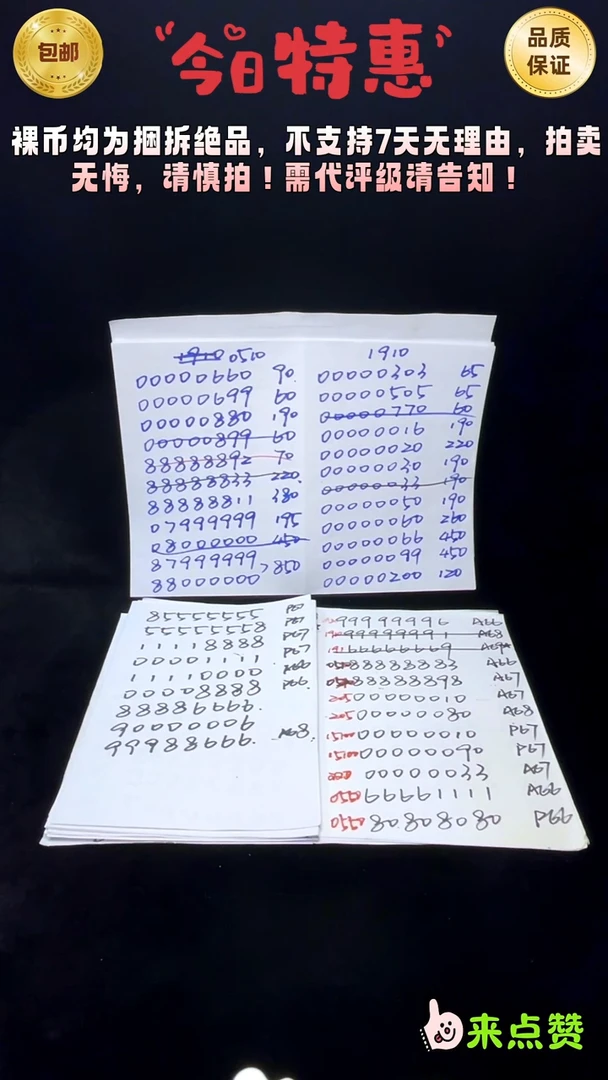 包邮
今日特惠
品质
保证
裸币均为捆拆绝品，不支持7天无理由，拍卖
无悔，请慎拍！需代评级请告知！
1910 0510
00000660 90
00000699 60
00000880 190
00000899 60
88888892 70
88888833 220
88888811 380
07999999 195
08000000 450
87999999
88000000 >850
1910
00000303 65
00000505 65
00000770 60
00000016 190
00000020 220
00000030 190
00000033 190
00000050 190
00000060 260
00000066 450
00000099 450
00000200 120
85555555 P67
55555558 P67
11118888 P67
00001111 P67
11110000 P66
00008888 P66
88886666.
90000006
99988666. A68.
99999996 A66
99999991 A68
66666669
88888883 A66
88888898 A67
205 00000010 A67
205 00000080 A68
15100 00000010 P67
15100 00000090 P67
00000033 A67
0550 66661111 A66
0550 80808080 P66
来点赞